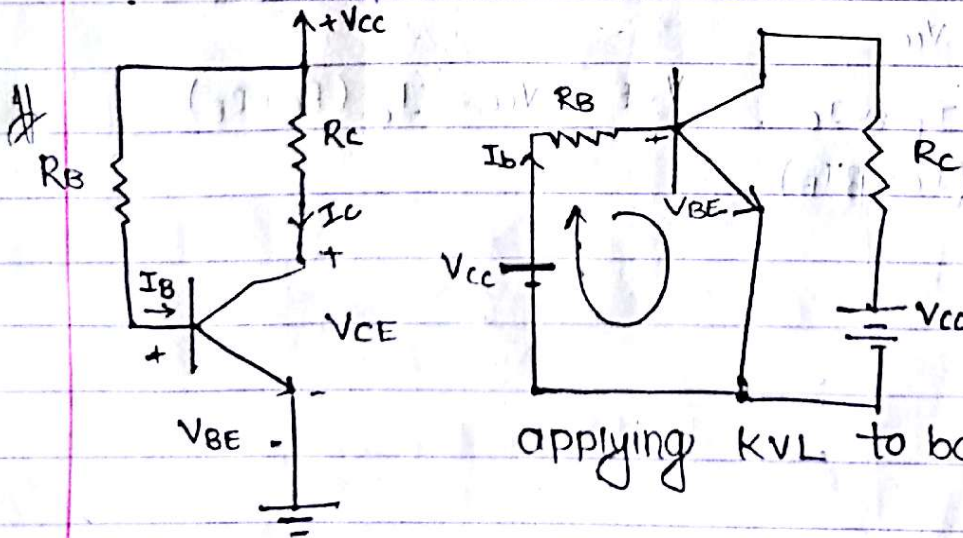 +Vcc
RB
RC
IC
+
IB
+
VCE
-
VBE -
RB
Ib
+
VBE
RC
VCC
VCC
applying KVL to ba